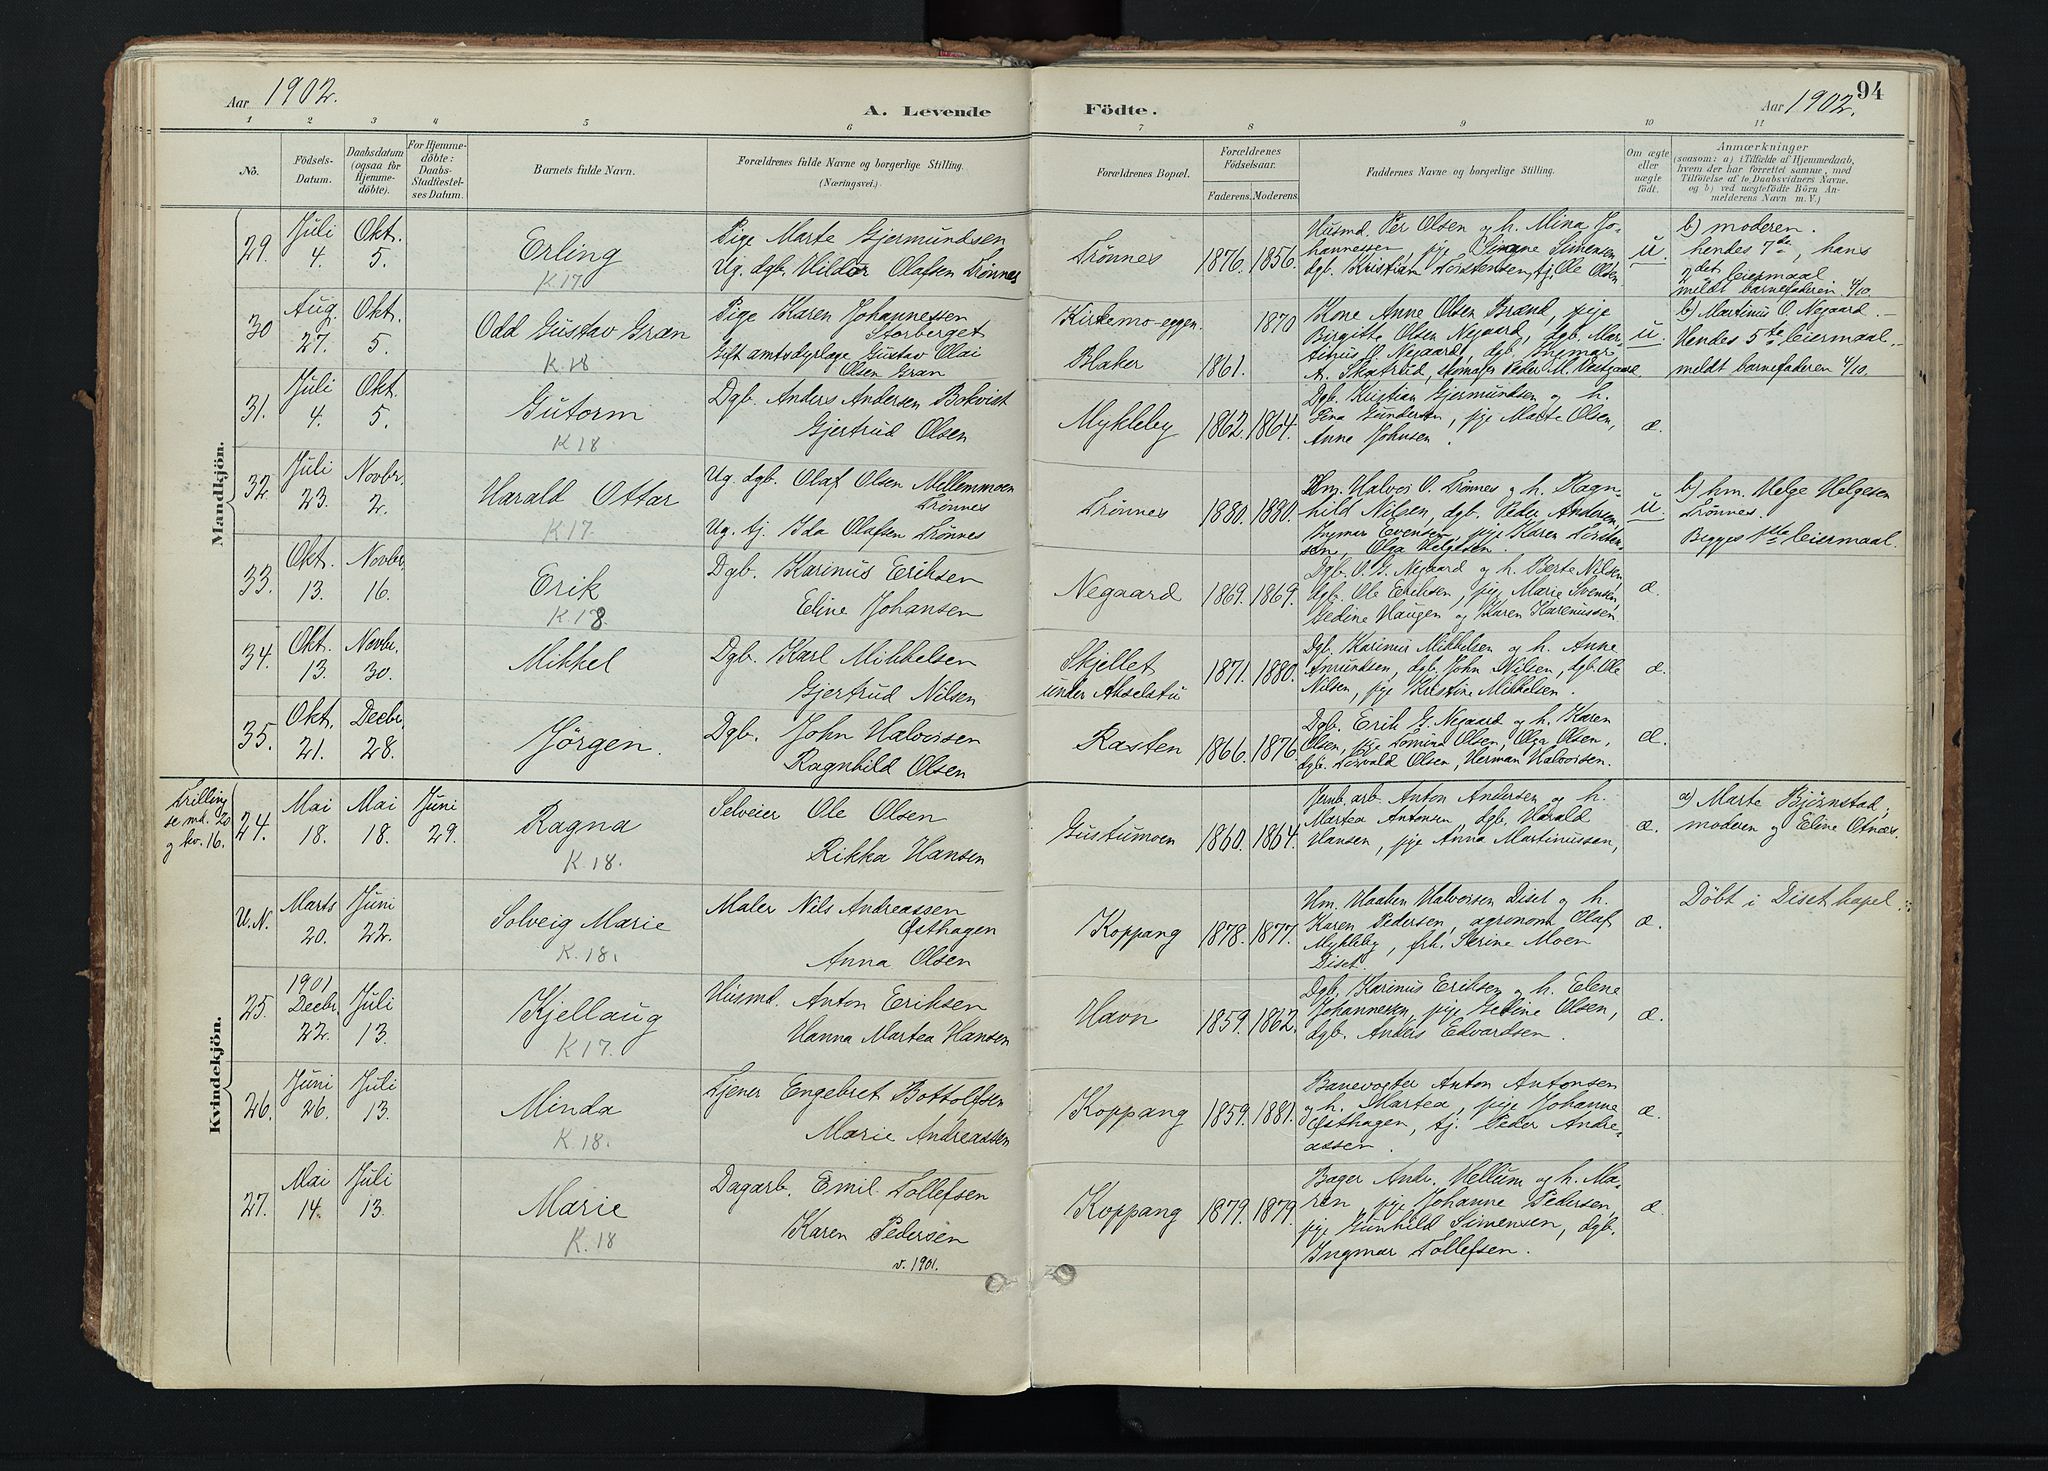 Aar 1902.
A. Levende Födte.
Aar 1902.
94
1 2 3 4 5 6 7 8 9 10 11
No.
Födsels-
Datum.
Daabsdatum
(ogsaa for
Hjemme-
döbte).
For Hjemme-
döbte:
Daabs-
Stadfæstel-
ses Datum.
Barnets fulde Navn.
Forældrenes fulde Navne og borgerlige Stilling.
(Næringsvei.)
Forældrenes Bopæl.
Forældrenes
Fødselsaar.
Faderens. Moderens.
Faddernes Navne og borgerlige Stilling.
Om ægte
eller
uægte
födt.
Anmærkninger
(saasom: a) i Tilfælde af Hjemmedaab,
hvem der har forrettet samme, med
Tilföielse af to Daabsvidners Navne,
og b) ved uægtefödte Börn An-
melderens Navn m. V.)
Mandkjön.
29.
Juli
4.
Okt.
5.
Erling
K 17
Pige Marte Gjermundsen
Ug. dgb. Vildor Olafsen Trønnes
Trønnes
1876. 1856.
Husmd. Per Olsen og h. Mina Jo-
hannessen, pige Oliane Simensen,
dgb. Kristian Torstensen, tj. Ole Olsen
u.
b) moderen.
hendes 7de, hans
2det leiermaal
meldt barnefaderen 4/10
30
Aug.
27.
Okt.
5.
Odd Gustav Gran
K. 18
Pige Karen Johannessen
Storberget
Gift amtsdyrlæge Gustav Olai
Olsen Gran
Kirkemo-eggen.
Blaker
1870
1861.
Kone Anne Olsen Brand, pige
Birgitte Olsen Negaard, dgb. Mar-
tinus O. Negaard, dgb. Ingmar
A. Skatrud, skomager Peder M. Vestgaard.
u.
b) Martinus O. Negaard.
Hendes 5te leiermaal.
meldt barnefaderen 4/10.
31.
Juli
4.
Okt.
5.
Gutorm
K 18
Dgb. Anders Andersen Bokvist
Gjertrud Olsen
Mykleby
1862. 1864.
Dgb. Kristian Gjermundsen og h.
Lena Gundersen, pige Marte Olsen,
Anne Johnsen.
æ.
32.
Juli
23.
Novbr.
2.
Harald Ottar
K 17.
Ug. dgb. Olaf Olsen Mellemmoen
Trønnes
Ug. tj. Ida Olafsen Trønnes
Trønnes
1880. 1880.
Hm. Halvor O. Trønnes og h. Ragn-
hild Nilsen, dgb. Peder Andersen,
Ingmar Evensen, pige Karen Torsten-
sen, Olga Helgesen.
u.
b) hm. Helge Helgesen
Trønnes.
Begges 1ste leiermaal.
33.
Okt.
13.
Novbr.
16.
Erik
K 18.
Dgb. Karinus Eriksen
Eline Johansen
Negaard
1869. 1869.
Dgb. O. G. Negaard og h. Berte Nilsen,
dgb. Ole Eriksen, pige Marie Svensen,
Gedine Haugen og Karen Karenussen.
æ.
34.
Okt.
13.
Novbr.
30.
Mikkel
Dgb. Karl Mikkelsen
Gjertrud Nilsen
Skjellet
under Akselstu
1871. 1880.
Dgb. Karinus Mikkelsen og h. Anne
Amundsen, dgb. John Nilsen, dgb. Ole
Nilsen, pige Kristine Mikkelsen.
æ.
35.
Okt.
21.
Decbr.
28.
Jørgen.
Dgb. John Halvorsen
Ragnhild Olsen
Rasten
1866. 1876.
Dgb. Erik G. Negaard og h. Karen
Olsen, pige Tomina Olsen, Olga Olsen,
dgb. Torvald Olsen, Herman Halvorsen.
æ.
Kvindekjön.
Trilling
se mk. 20
og kv. 16.
24.
Mai
18.
Mai
18.
Juni
29.
Ragna
K. 18.
Selveier Ole Olsen
Rikka Hansen
Gustumoen
1860. 1864.
Jernb. arb. Anton Andersen og h.
Martea Antonsen, dgb. Harald
Hansen, pige Anna Martinussen,
æ.
a) Marte Bjørnstad,
moderen og Eline Otnæs.
U. N.
Marts
20.
Juni
22.
Solveig Marie
K. 18.
Maler Nils Andreassen
Østhagen
Anna Olsen
Koppang
1878. 1877.
Hm. Haaken Halvorsen Diset og h.
Karen Pedersen, agronom Olaf
Mykleby, frk. Serine Moen
Diset.
æ.
Døbt i Diset kapel.
25.
1901
Decbr.
22.
Juli
13.
Kjellaug
K 17.
Husmd. Anton Eriksen
Hanna Martea Hansen
Havn
1859. 1862.
Dgb. Karinus Eriksen og h. Elene
Johannesen, pige Gedine Olsen,
dgb. Anders Edvardsen.
æ.
26.
Juni
26.
Juli
13.
Minda
K. 18.
Tjener Engebret Bottolfsen
Marie Andreassen
Koppang
1859. 1881.
Banevogter Anton Antonsen
og h. Martea, pige Johanne
Østhagen, tj. Peder Andre-
assen.
æ.
27.
Mai
14.
Juli
13.
Marie
K. 18
Dagarb. Emil Tollefsen
Karen Pedersen
v. 1901.
Koppang
1879. 1879.
Bager Andr. Hellum og h. Ma-
ren, pige Johanne Pedersen,
pige Gunhild Simensen, dgb.
Ingmar Tollefsen.
æ.